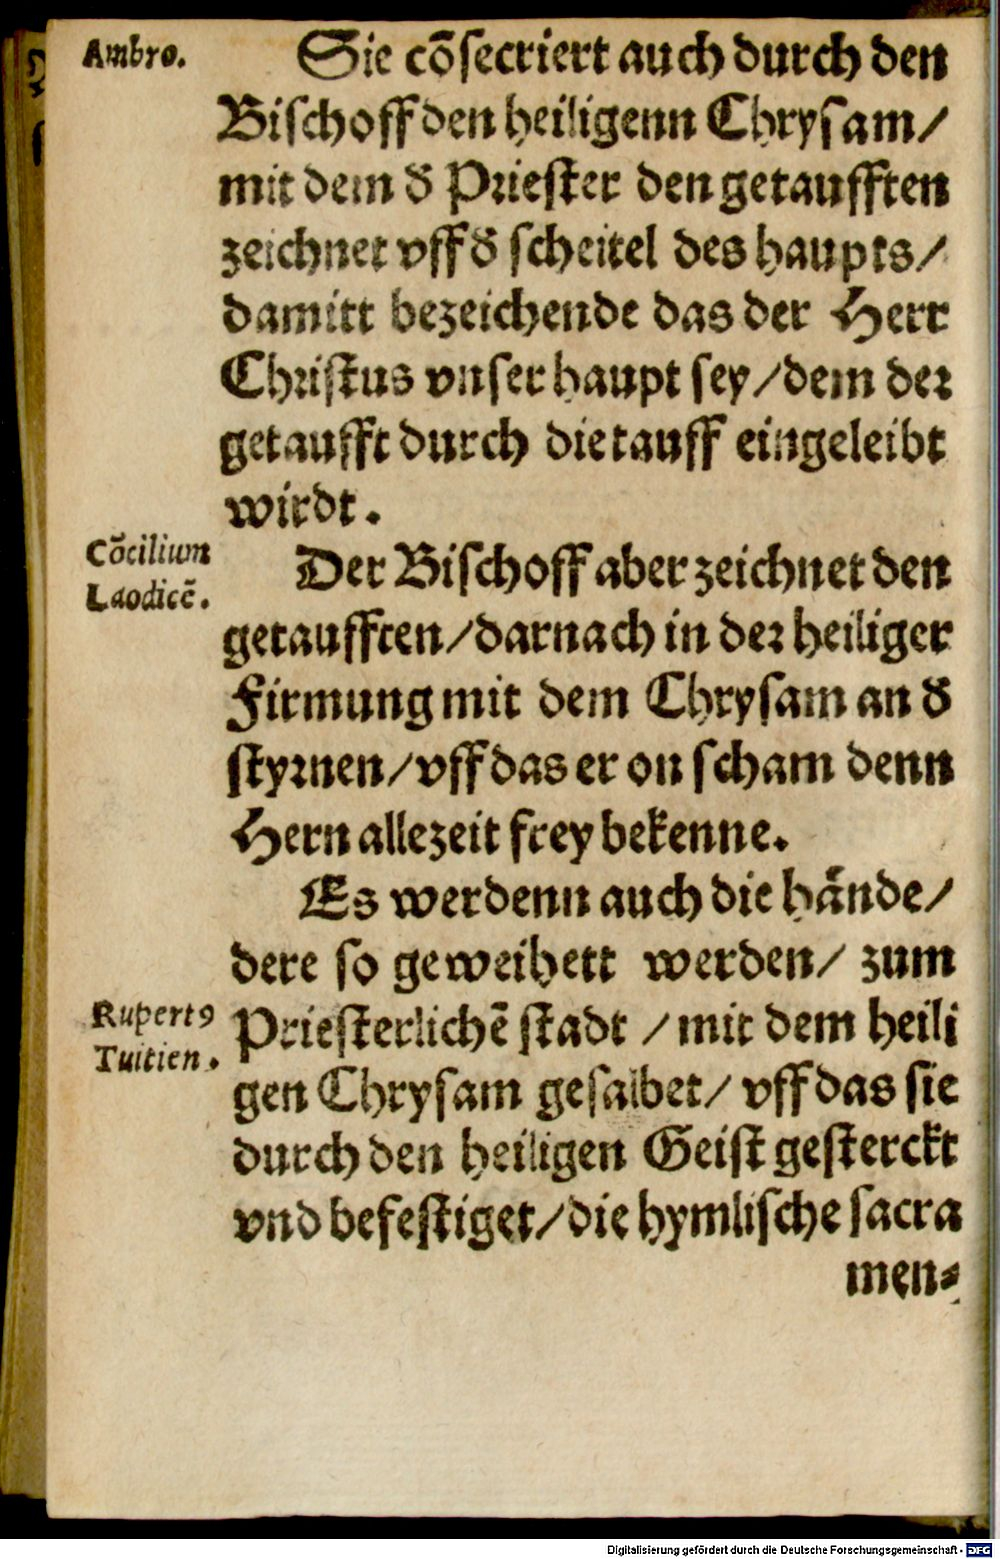 Ambro.
Sie cõsecriert auch durch den
Bischoff den heiligenn Chrysam/
mit dem d̕ Priester den getaufften
zeichnet vff d̕ scheitel des haupts/
damitt bezeichende das der Herr
Christus vnser haupt sey/dem der
getaufft durch die tauff eingeleibt
wirdt.
Cõcilium
Laodicẽ.
Der Bischoff aber zeichnet den
getaufften/darnach in der heiliger
Firmung mit dem Chrysam an d̕
styrnen/vff das er on scham denn
Hern allezeit frey bekenne.
Es werdenn auch die hãnde/
dere so geweihett werden/ zum
Rupertꝰ
Tuitien.
Priesterlichẽ stadt /mit dem heili
gen Chrysam gesalbet/ vff das sie
durch den heiligen Geist gesterckt
vnd befestiget/die hymlische sacra
men⸗
Digitalisierung gefördert durch die Deutsche Forschungsgemeinschaft - DFG